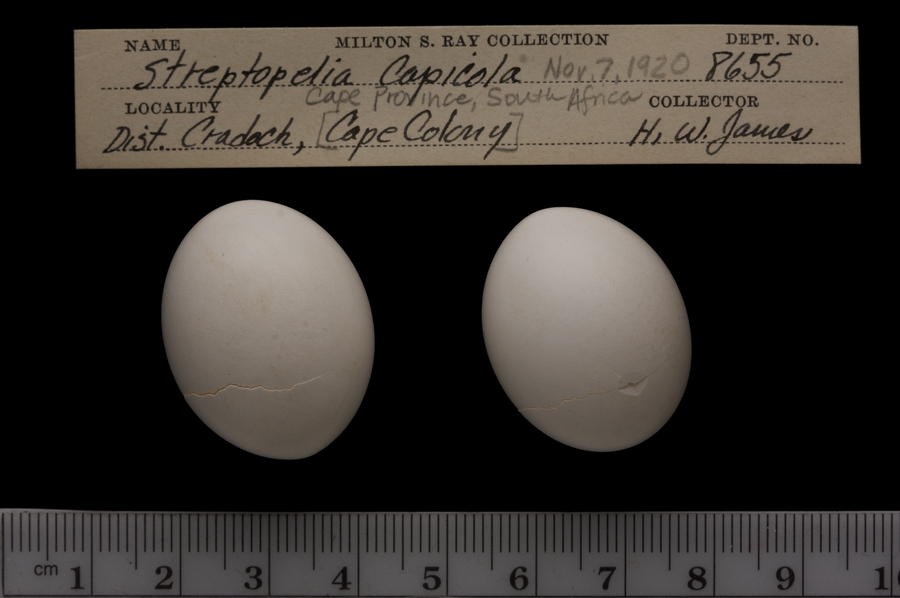 NAME MILTON S. RAY COLLECTION DEPT. NO.
Streptopelia Capicola Nov. 7, 1920 8655
Cape Province, South Africa
LOCALITY COLLECTOR
Dist. Cradock, [Cape Colony] H. W. James
cm 1 2 3 4 5 6 7 8 9 1